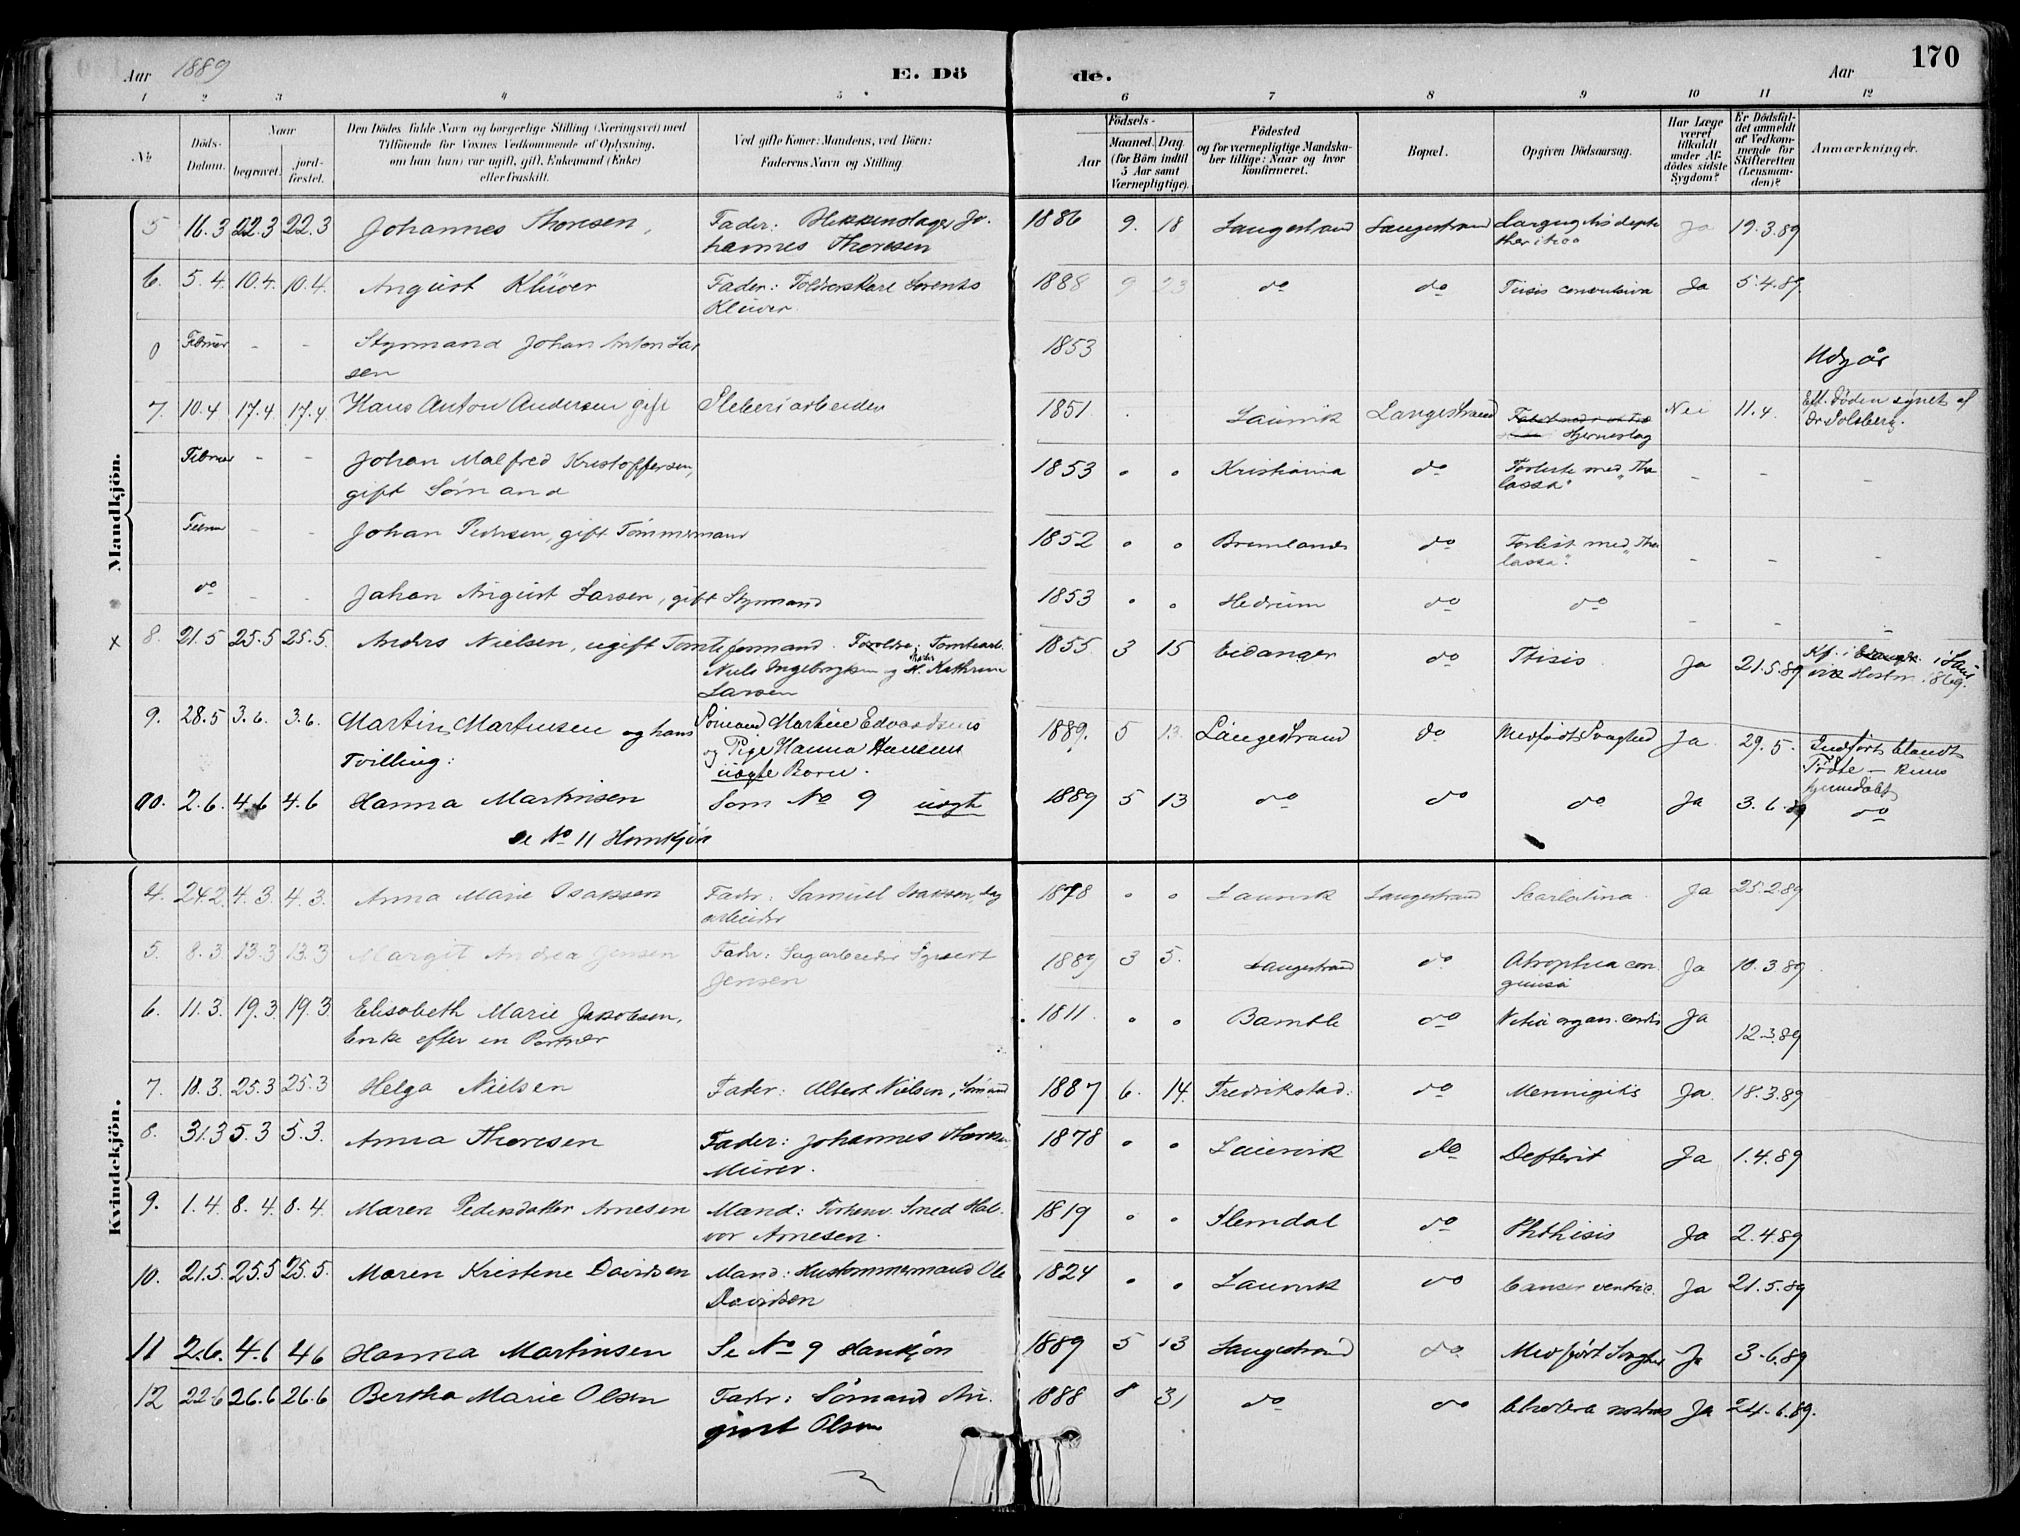 Aar 1889 E. Dö de. Aar 170
1 2 3 4 5 6 7 8 9 10 11 12
No Döds-Datum. Naar begravet. jordfæstet. Den Dödes fulde Navn og borgerlige Stilling (Næringsvei) med Tilföiende for Voxnes Vedkommende af Oplysning, om han (hun) var ugift, gift, Enkemand (Enke) eller fraskilt. Ved gifte Koner: Mandens, ved Börn: Faderens Navn og Stilling Födsels- Aar Maaned. Dag. (for Börn indtil 5 Aar samt Værnepligtige). Födested og for værnepligtige Mandskaber tillige: Naar og hvor konfirmeret. Bopæl. Opgiven Dödsaarsag. Har Læge været tilkaldt under Afdödes sidste Sygdom? Er Dödsfaldet anmeldt af Vedkommende for Skifteretten (Lensmanden)? Anmærkninger.
Mandkjön.
5 16.3 22.3 22.3 Johannes Thoresen, Fader: Blikkenslager Jo- 1886 9. 18 Langestrand Langestrand Laryngitis diphtheritica Ja 19.3.89
hannes Thoresen
6. 5.4. 10.4. 10.4. August Klüver Fader: Toldopskarl Lorents 1888 9 23 do do Tusis convulsiva Ja 5.4.89
Klüver.
0 Februar - - Styrmand Johan Anton Lar 1853 Udgår
sen
7. 10.4 17.4 17.4 Hans Anton Andersen gift Sleberiarbeider 1851 Laurvik Langestrand Hjerneslag Nei 11.4. Eft. Döden synet af Dr Solberg.
Februar - - Johan Malfred Kristoffersen, 1853 " " Kristiania do Forliste med "Thalassa" - - -
gift Sömand
Februar - - Johan Pedersen, gift Tömmermand 1852 " " Brunlanes do Forlist med "Thalassa". - - -
do - - Johan August Larsen, gift Styrmand 1853 " " Hedrum do do - - -
x 8. 21.5 25.5 25.5. Anders Nielsen, ugift Tomteformand. Foreldre: Tomtearb. 1855 3 15 Eidanger do Ftisis Ja 21.5.89 Kf. i Laur
Niels Ingebrigtsen og Moder Kathrine vik Höstn 1869.
Larsen
9. 28.5 3.6. 3.6. Martin Martinsen og hans Sömand Martin Edvardsens 1889. 5 13 Langestrand do Medfödt Svaghed Ja. 29.5. Indfört blandt
Tvilling: og Pige Hanna Hansens Födte - kun
uægte Barn. hjemmedöbt
10. 2.6. 4.6 4.6 Hanna Martinsen Som No 9 uægte 1889 5 13 do do do Ja 3.6.89 do
se No 11 Hunkjön
Kvindekjön.
4. 24.2. 4.3 4.3. Anna Marie Isaksen Fader: Samuel Isaksen, Sag 1878 " " Laurvik Langestrand Scarlatina. Ja 25.2.89
arbeider
5. 8.3. 13.3 13.3 Margit Andrea Jensen Fader: Sagarbeider Syvert 1889 3 5. Langestrand do Atrophia con- Ja 10.3.89.
Jensen
6. 11.3. 19.3 19.3 Elisabeth Marie Jakobsen, 1811 " " Bamble do Vitia organ. cordis Ja 12.3.89
Enke efter en Portner
7. 18.3. 25.3 25.3 Helga Nielsen Fader: Albert Nielsen, Sömand 1887 6. 14. Fredrikstad. do Meningitis Ja. 18.3.89
8. 31.3 5.3 5.3. Anna Thoresen Fader: Johannes Thoresen 1878 " " Laurvik do Defterit Ja 1.4.89
Murer.
9. 1.4. 8.4. 8.4. Maren Pedersdatter Arnesen Mand: Forhenv. Smed Hal- 1819 " " Slemdal do Phthisis Ja 2.4.89
vor Arnesen.
10. 21.5. 25.5 25.5. Maren Kristine Davidsen Mand: Hustömmermand Ole 1824 " " Laurvik do Cancer ventric. Ja 21.5.89
Davidsen
11 2.6. 4.6 4.6 Hanna Martinsen Se No 9 Hankjön 1889 5 13 Langestrand do Medfödt Svaghed Ja 3.6.89
12 22.6 26.6 26.6 Bertha Marie Olsen Fader: Sömand Au- 1888 8 31 do do Cholera nostras Ja 24.6.89.
gust Olsen